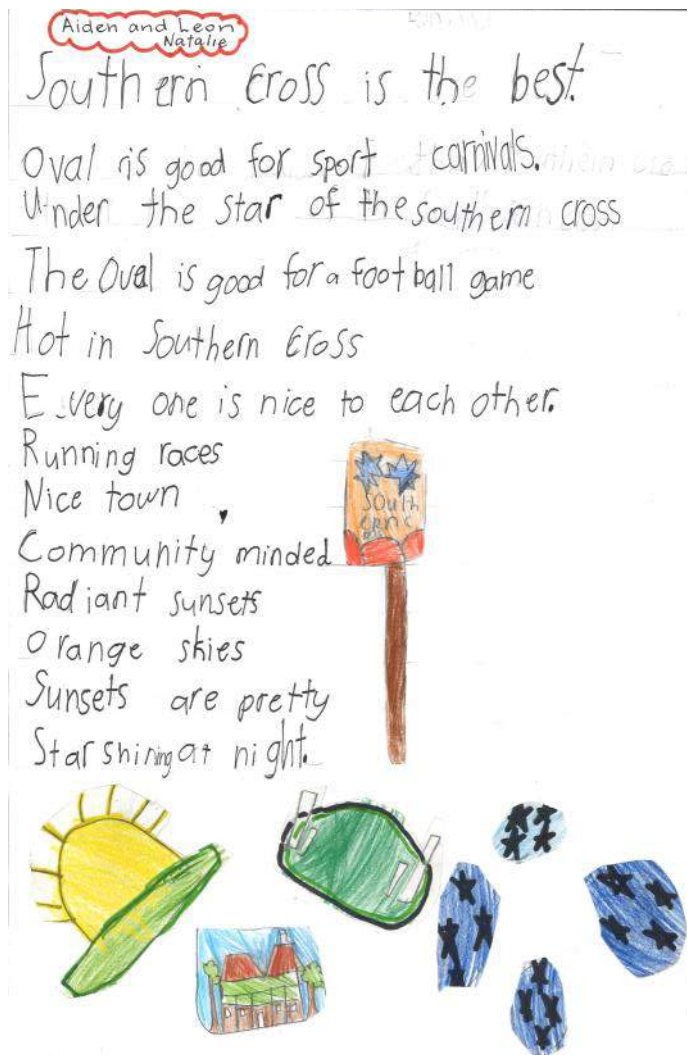 Aiden and Leon
Natalie
Southern Cross is the best.
Oval is good for sport carnivals.
Under the star of the southern cross
The Oval is good for a football game
Hot in Southern Cross
Every one is nice to each other.
Running races
Nice town
Community minded
Radiant sunsets
Orange skies
Sunsets are pretty
Star shining at night.
South